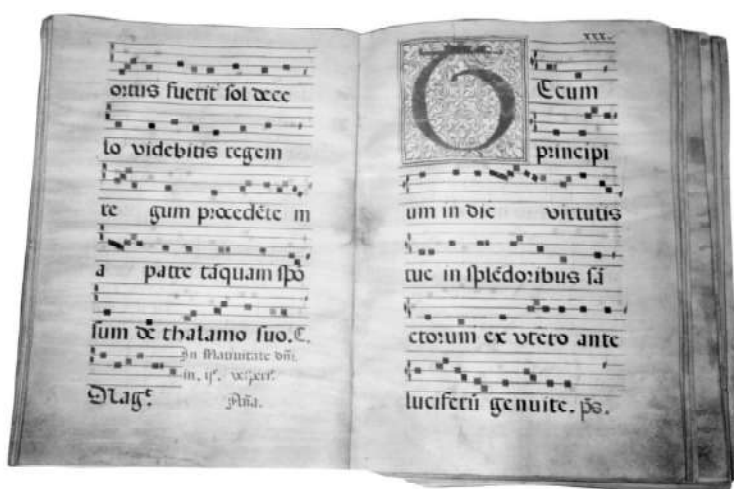 ortus fuerit sol de ce
lo videbitis regem
re gum procedēte m
a patre tāquam spō
sum de thalamo suo. C.
In Natiuitate dñi.
in. ijs. vesperis.
Mag. Aña.
xxx.
T Ecum
principi
um in die virtutis
tue in splēdoribus sā
ctorum ex vtero ante
luciferū genuite. p̄s.